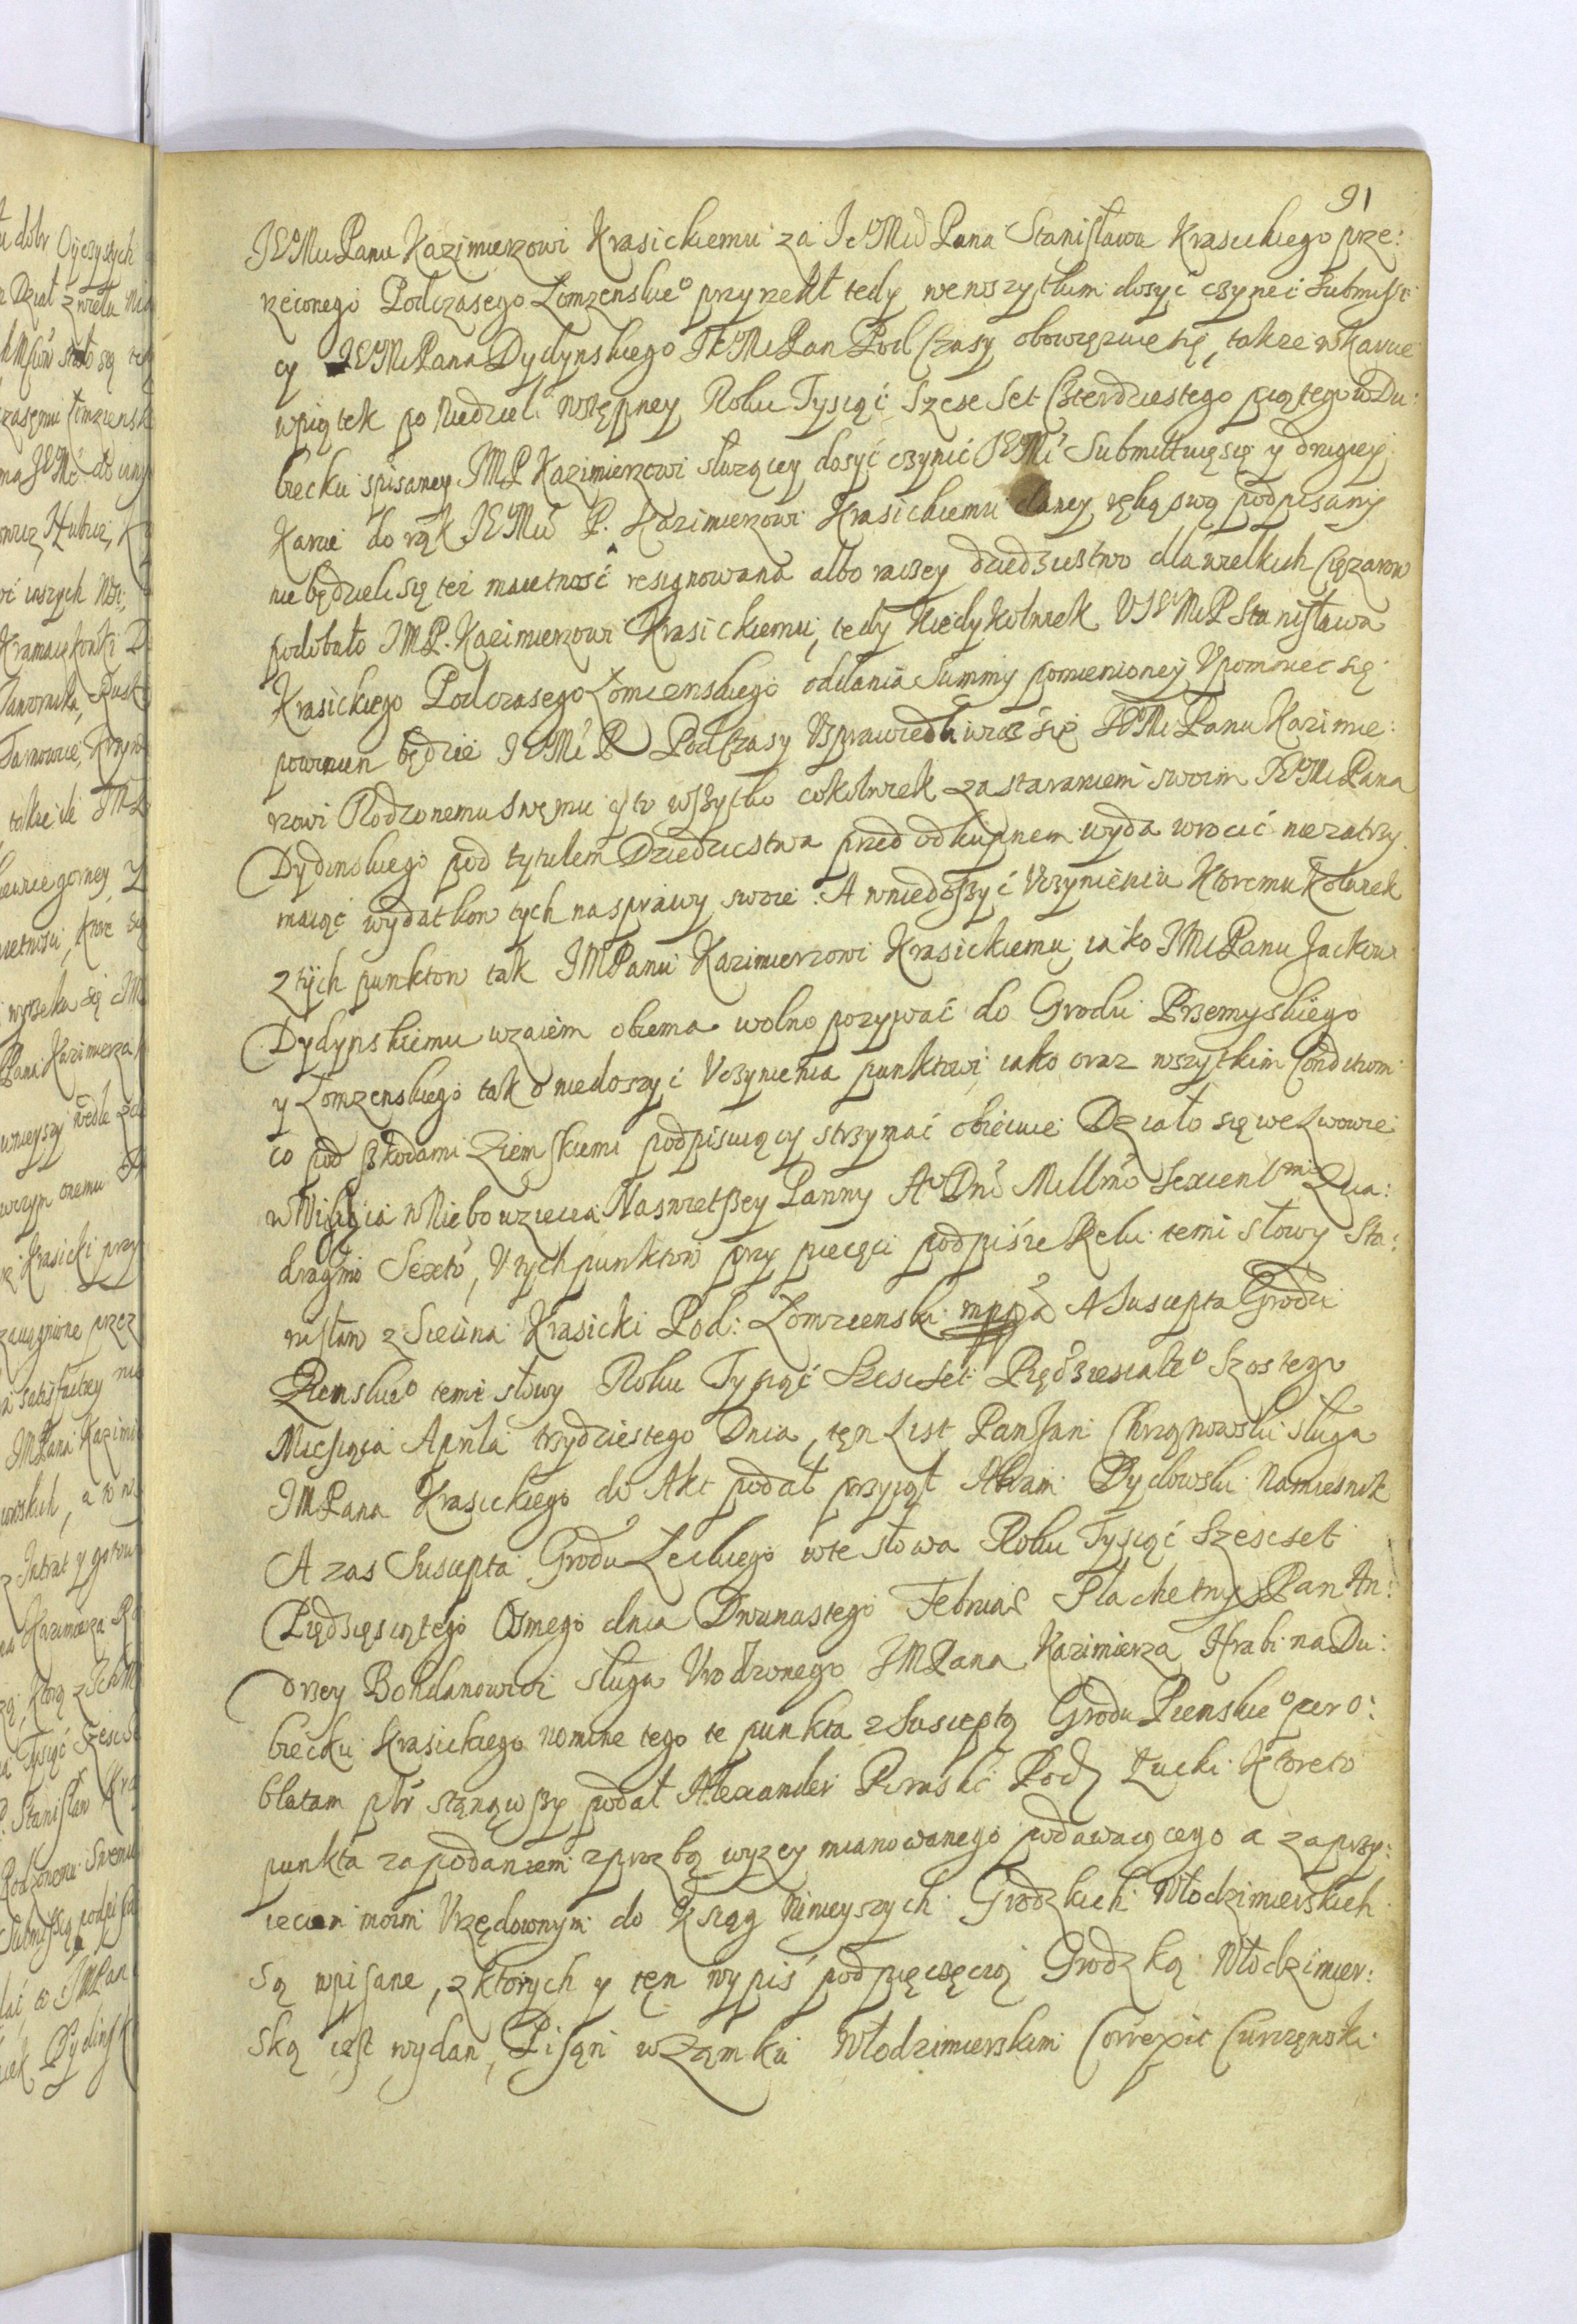 91
JEoMu Panu Kazimierzowi Krasickiemu za JeoMci Pana Stanisława Krasickiego prze:
rzeczonego Podczaszego Łomzenskieo przyrzekł tedy wewszytkim dosyć czynić Submissi
cy JEoMci Pana Dydynskiego JEoMci Pan Podczaszy obowięzuie się, takze w karcie
wpiątek po Niedzieli wstępney Roku Tysiąć Szesc Set Czterdziestego piątego w Du:
biecku spisaney JMP Kazimierzowi słuzącey dosyć czynić JEoMć Submittuię się y drugiey
karcie do rąk JEoMci P. Kazimierzowi Krasickiemu daney ręką swą podpisany
nie będzieli się też maiętność resignowana albo raczey dziedzictwo dla wielkich Ciężarow
podobało JMP. Kazimierzowi Krasickiemu, tedy kiedykolwiek V JEoMci P Stanisława
Krasickiego Podczaszego Łomzenskiego oddania Summy pomienioney Vpomniec się
powinien będzie JEoMć P Podczaszy Vsprawiedliwić się JEoMci Panu Kazimie:
rzowi Rodzonemu swemu y to wszytko cokolwiek za staraniem swoim JEoMci Pana
Dydinskiego pod tytułem Dziedzictwa przed odkupnem wyda wrocić niezatrzy
maiąć wydatkow tych na sprawy swoie. A wniedoszyć Vczynieniu Ktoremu kolwiek
z tych punktow tak JMPanu Kazimierzowi Krasickiemu iako JMci Panu Jackowi
Dydynskiemu wzaiem obiema wolno pozywać do Grodu Przemyskiego
y Łomzenskiego tak o niedoszyć Vczynienia punktowi iako oraz wszytkim Conditiom
co pod szkodami Ziemskiemi podpisuiący strzymać obiecuie Działo się we Lwowie
w Wigilia w Niebowzięcia Naswietszey Panny Ao Dni Millmo Sexcentmo Qua:
dragmo Sexto, V tych punktow przy pieczęci podpis ręki temi słowy Sta:
nisław z Siecina Krasicki Pod: Łomzienski mpp A Suscepta Grodu
Pienskieo temi słowy Roku Tysiąć Szescset Pięćdziesiateo Szostego
Miesiąca Aprila trzydziestego Dnia, ten List Pan Jan Chrząnowski sługa
JMPana Krasickiego do Akt podał przyiął Adam Bydłowski Namiesnik
A zas Suscepta Grodu Łuckiego wte słowa Roku Tysiąć Szescset
Pięćdziesiątego Osmego dnia Dwunastego Februar Slachetny Pan An:
drzey Bohdanowicz sługa Vrodzonego JMPana Kazimierza Hrabi na Du:
biecku Krasickiego nomine tego te punkta z Susceptą Grodu Pienskieo per o:
blatam ptr stanąwszy podał Alexander Piraski Pod Łucki Ktore to
punkta zapodaniem zprozbą wyzey mianowanego podawaiącego a zaprzy:
ięciem moim Vrzędownym do Xsiąg Ninieyszych Grodzkich Włodzimierskich
są wpisane, z ktorych y ten wypis podpieczęcią Grodzką Włodzimier:
ską iest wydan, Pisąn w Zamku Włodzimierskim Correxit Curzęnski